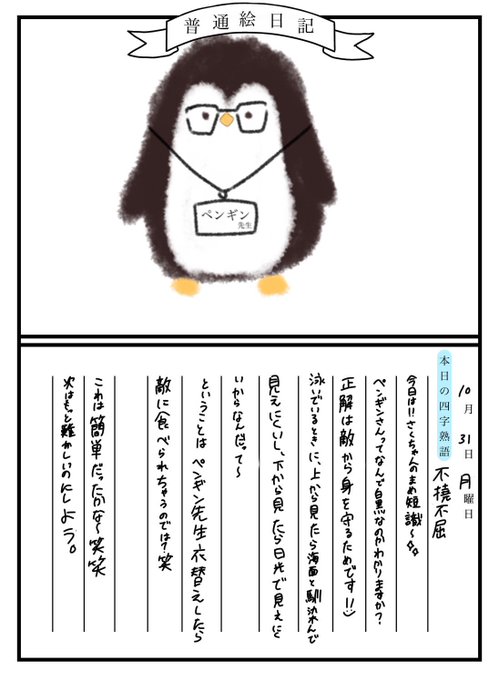 普通絵日記
ペンギン
先生
10月31日月曜日
本日の四字熟語 不撓不屈
今日は!!さくちゃんのまめ短識〜☆☆
ペンギンさんってなんで白黒なのかわかりますか?
正解は敵から身を守るためです!!:)
泳いでいるときに、上から見たら海面と馴染んで
見えにくいし、下から見たら日光で見えに
いからなんだって〜
ということは ペンギン先生衣替えしたら
敵に食べられちゃうのでは?笑
これは簡単だったかな〜笑笑
次はもっと難かしいのにしよう。